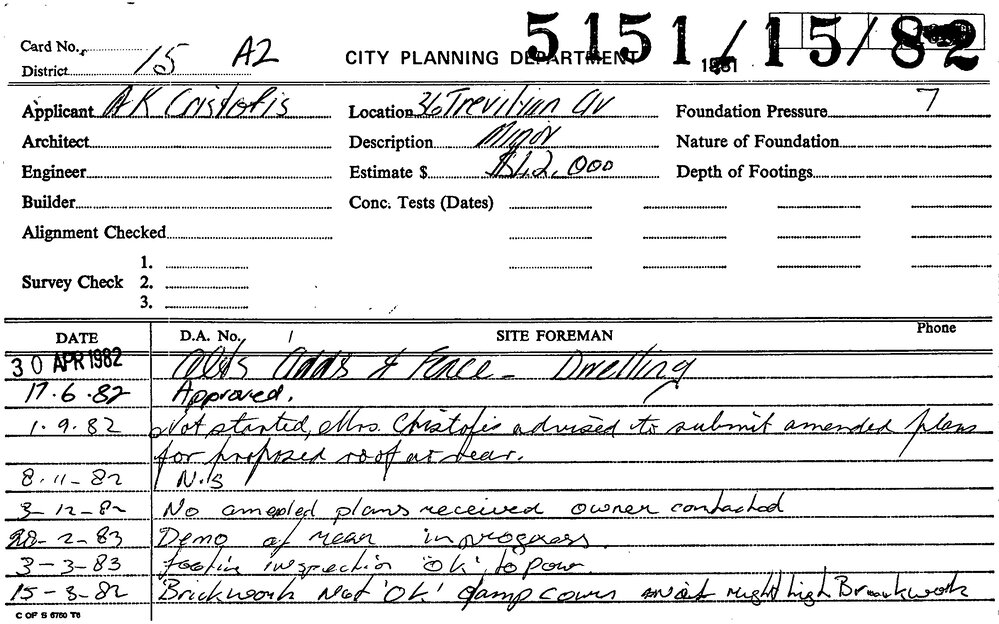 Card No.
District 15 A2
CITY PLANNING DEPARTMENT
5151/15/82
1981
Applicant A K Cristofis
Location 36 Trevilyan Av
Foundation Pressure 7
Architect
Description Minor
Nature of Foundation
Engineer
Estimate $ $12,000
Depth of Footings
Builder
Conc. Tests (Dates)
Alignment Checked
Survey Check
1.
2.
3.
DATE
D.A. No.
SITE FOREMAN
Phone
30 APR 1982 Alts Adds & Fence - Dwelling
17.6.82 Approved.
1.9.82 Not started, Mrs. Christofis advised to submit amended plans
for proposed roof at rear.
8.11-82 N.S
3-12-82 No amended plans received owner contacted
28-2-83 Demo at rear in progress.
3-3-83 footing inspection 'OK' to pour.
15-3-82 Brickwork Not 'OK' damp course not right high Brickwork
C OF S 6760 T6